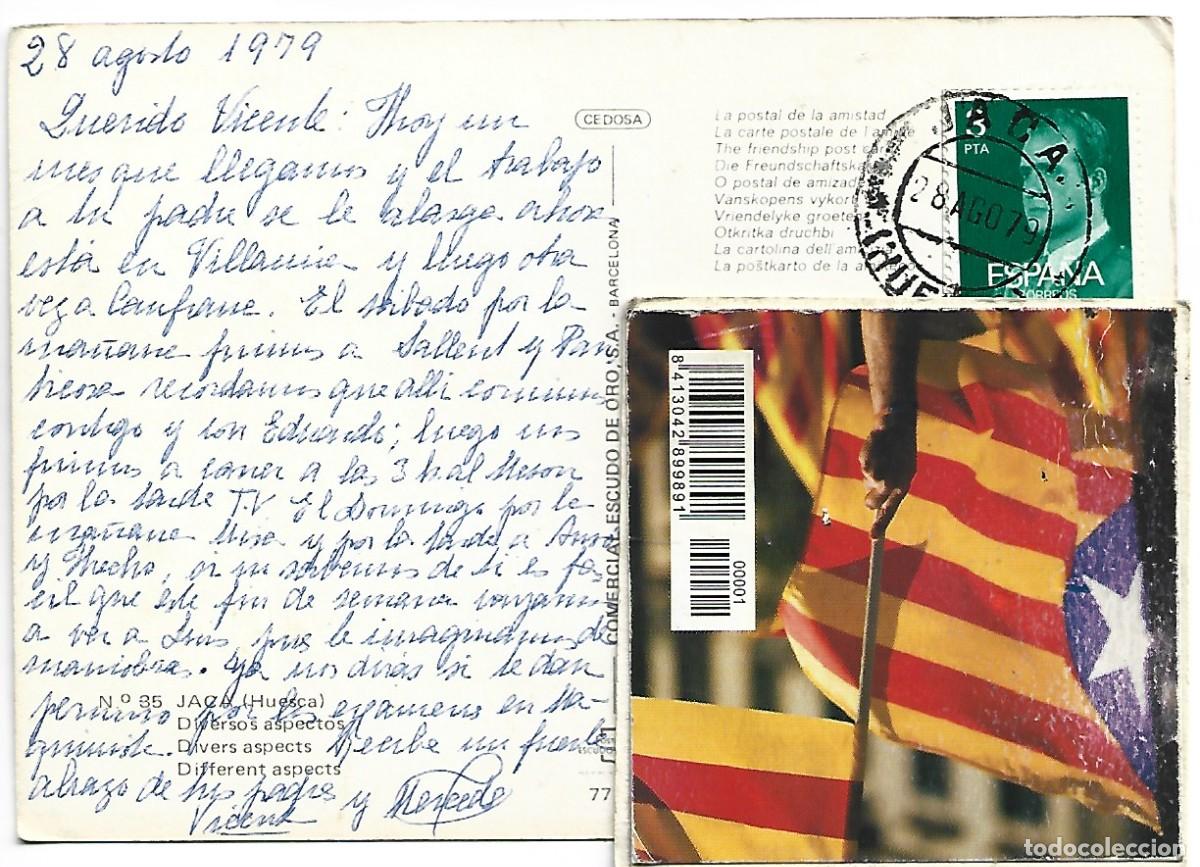 28 agosto 1979
Querido Vicente: Hoy un
mes que llegamos y el trabajo
a tu padre se le alarga ahora
está en Villanúa y luego otra
vez a Canfranc. El sábado por la
mañana fuimos a Sallent y Pan
ticosa recordamos que alli comimos
contigo y con Eduardo; luego nos
fuimos a comer a las 3 h. al Meson
por la tarde T.V. El Domingo por la
mañana Misa y por la tarde a Anso
y Hecho, si no sabemos de ti es fa
cil que este fin de semana vayamos
a ver a Luis pues le imaginamos de
maniobras. Ya nos dirás si te dan
permiso por los examenes en
Recibe un fuerte
abrazo de tus padres
Vicente y Mercedes
Nº 35 JACA (Huesca)
Diversos aspectos
Divers aspects
Different aspects
CEDOSA
COMERCIAL ESCUDO DE ORO, S.A. - BARCELONA
77
La postal de la amistad
La carte postale de l'amitié
The friendship post card
Die Freundschaftska
O postal de amizade
Vanskopens vykort
Vriendelyke groete
Otkritka druchbi
La cartolina dell'am
La poŝtkarto de la
3
PTA
ESPAÑA
CORREOS
JACA
28 AGO 79
(HUE
8413042899891
00001
todocoleccion